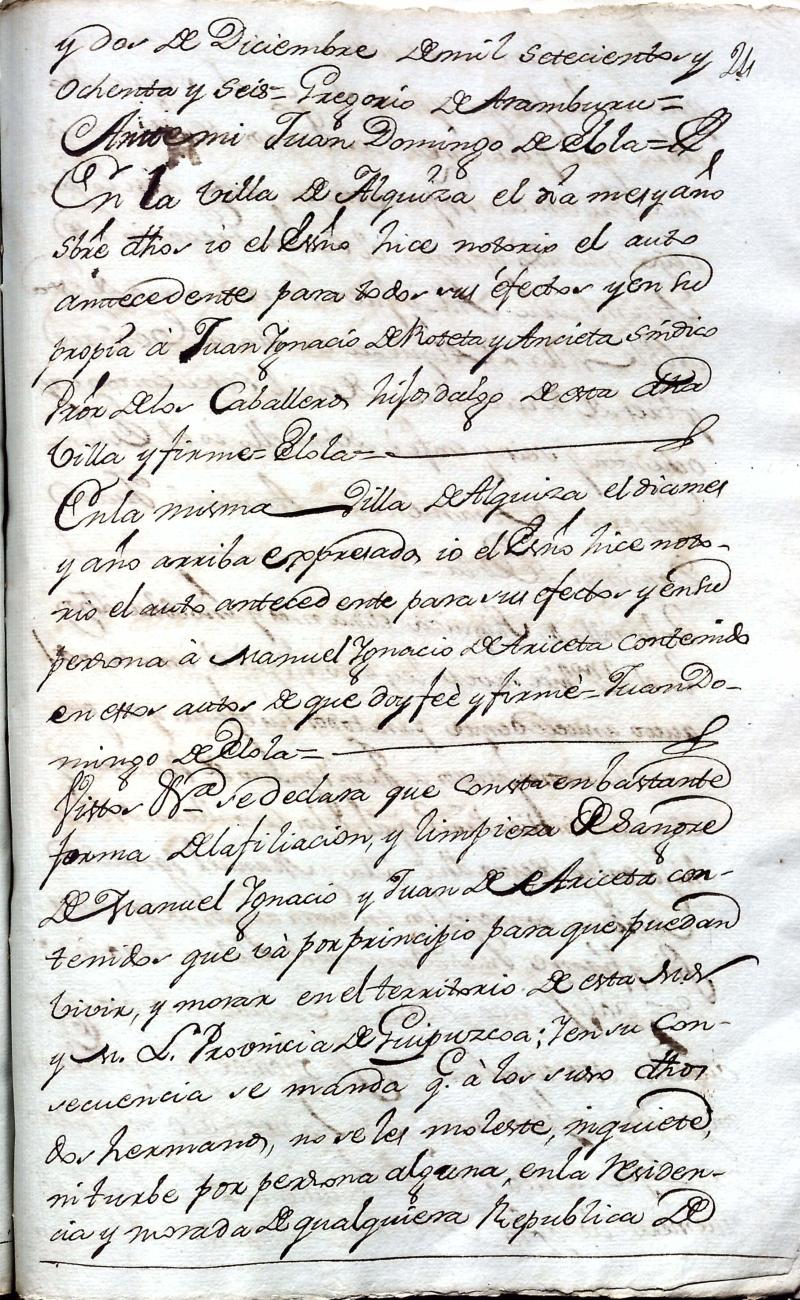 y dos de Diciembre de mil setecientos y
24
Ochenta y seis= Gregorio de Aramburu=
Ante mi Juan Domingo de Elola=
En la Villa de Alquiza el dia mes y año
sbre dhos io el Essno hice notorio el auto
antecedente para todos sus éfectos y en su
propia à Juan Ygnacio de Roteta y Ancieta síndico
Prór de los Caballeros hijosdalgo de esta dha
Villa y firme= Elola=
En la misma Villa de Alquiza el dia mes
y año arriba expresados io el Essno hice noto-
rio el auto antecedente para sus efectos y en su
persona à Manuel Ygnacio de Ariceta contenido
en estos autos de que doy feè y firmè= Juan Do-
mingo de Elola=
Vistos &ra se declara que consta en bastante
forma de la filiacion, y limpieza de Sangre
de Manuel Ygnacio y Juan de Ariceta con-
tenidos que và por principio para que puedan
Vivir, y morar en el territorio de esta M. N.
y M. L. Provincia de Guipuzcoa; Y en su con-
secuencia se manda q. à los suso dhos
dos hermanos, no se les moleste, inquiete,
ni turbe por persona alguna, en la Residen-
cia y morada de qualquiera Republica de